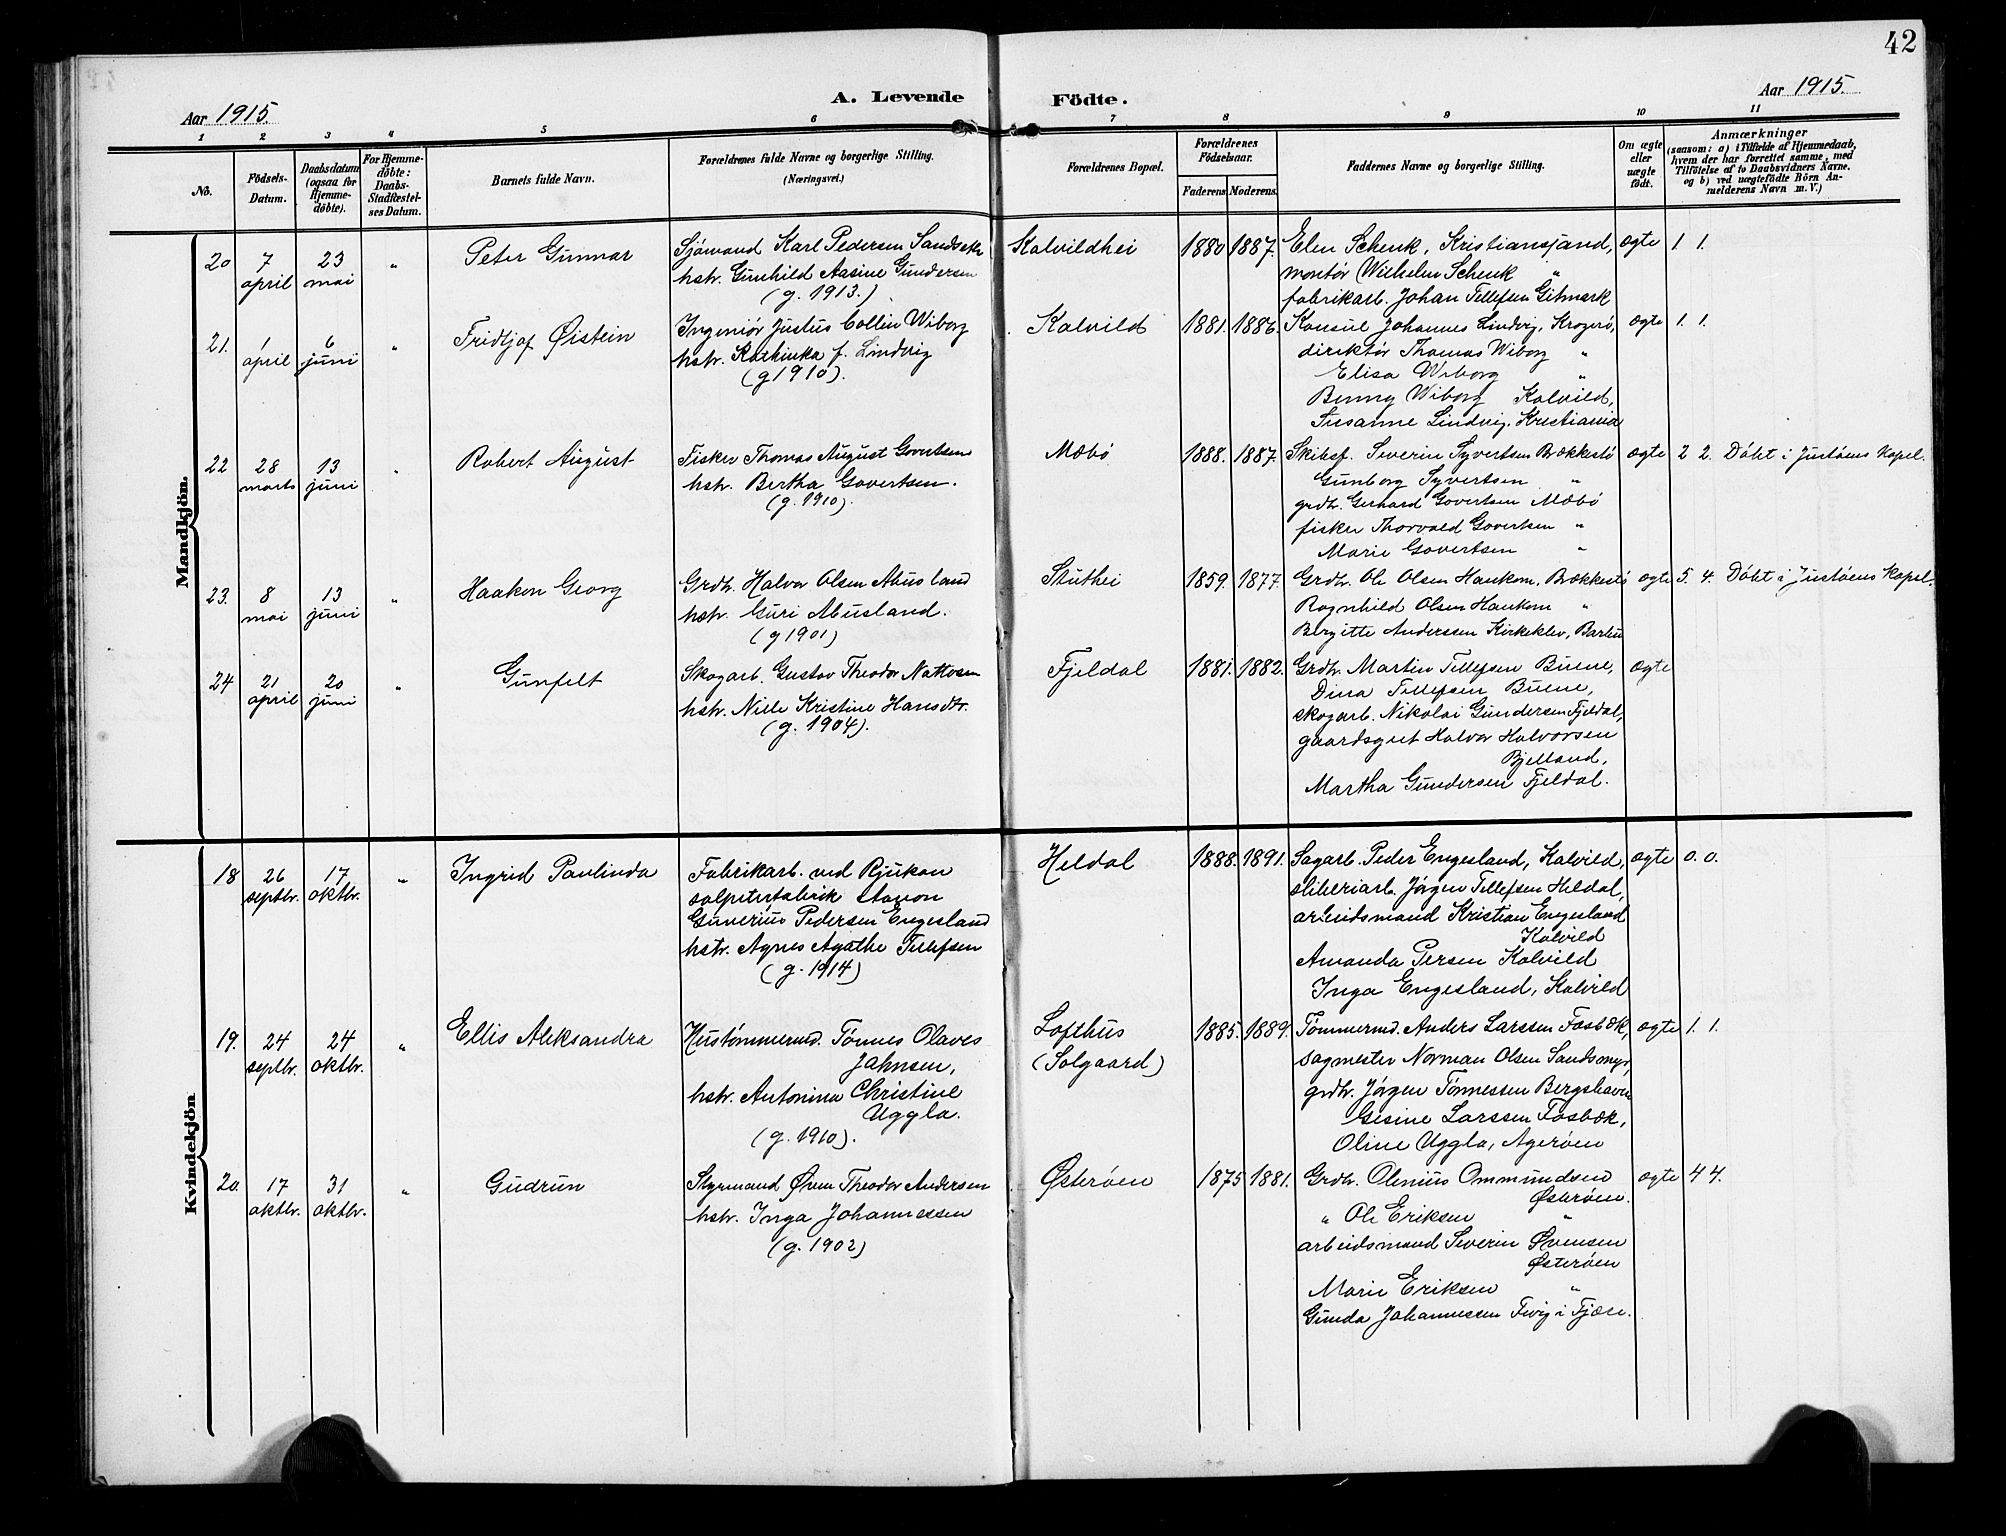 42
Aar 1915.
A. Levende
Födte.
Aar 1915.
1 2 3 4 5 6 7 8 9 10 11
No.
Födsels-Datum.
Daabsdatum (ogsaa for Hjemmedöbte).
For Hjemmedöbte: Daabs-Stadfæstelses Datum.
Barnets fulde Navn.
Forældrenes fulde Navne og borgerlige Stilling.
(Næringsvei.)
Forældrenes Bopæl.
Forældrenes Födselsaar.
Faderens. Moderens.
Faddernes Navne og borgerlige Stilling.
Om ægte eller uægte födt.
Anmærkninger
(saasom: a) i Tilfælde af Hjemmedaab, hvem der har forrettet samme, med Tilföielse af to Daabsvidners Navne. og b) ved uægtefödte Börn Anmelderens Navn m. V.)
Mandkjön.
20 7 april 23 mai " Peter Gunnar
Sjømand Karl Pedersen
hstr. Gunhild Aasine Gundersen
(g. 1913.)
Kalvildhei 1880 1887.
Elen Schenk, Kristianssand,
montør Wilhelm Schenk "
fabrikarb. Johan Tellefsen Gitmark
ægte 1. 1.
21. 1 april 6 juni " Fridtjof Øistein
Ingeniør Justus Collin Wiborg
hstr. Kathinka f. Lindvig
(g 1910).
Kalvild 1881. 1886.
Konsul Johannes Lindvig, Kragerø,
direktør Thomas Wiborg "
Elisa Wiborg "
Benny Wiborg Kalvild,
Susanne Lindvig, Kristiania
ægte 1. 1.
22 28 marts 13 juni " Robert August
Fisker Thomas August Govertsen
hstr. Bertha Govertsen.
(g. 1910).
Mæbø 1888. 1887.
Skibsf. Severin Syvertsen Brækkestø
Gunborg Syvertsen "
grdbr. Gerhard Govertsen Mæbø
fisker Thorvald Govertsen "
Marie Govertsen "
ægte 2 2. Døbt i Justøens kapel.
23. 8 mai 13 juni " Haakon Georg
Grdbr. Halvor Olsen Abusland
hstr. Guri Abusland.
(g 1901)
Stuthei 1859. 1877.
Grdbr. Ole Olsen Haukom, Brækkestø
Ragnhild Olsen Haukom "
Bergitte Anderssen Kirkeklev, Barbu
ægte 5. 4. Døbt i Justøens kapel.
24 21 april 20 juni " Gunfelt
Skogarb. Gustav Theodor
hstr. Nille Kristine Hansdtr.
(g. 1904).
Fjeldal 1881. 1882.
Grdbr. Martin Tellefsen Buene,
Dina Tellefsen Buene,
skogarb. Nikolai Gundersen Fjeldal,
gaardsgut Halvor Halvorsen
Bjelland,
Martha Gundersen Fjeldal.
ægte
Kvindekjön
18 26 septbr. 17 oktbr. " Ingrid Paulinda
Fabrikarb. ved Rjukan
salpeterfabrik
Guverius Pedersen Engesland
hstr. Agnes Agathe Tellefsen
(g. 1914)
Heldal 1888. 1891.
Sagarb. Peder Engesland, Kalvild,
sliberiarb. Jørgen Tellefsen Heldal,
arbeidsmand Kristian Engesland
Kalvild
Amanda Persen Kalvild
Inga Engesland, Kalvild
ægte 0. 0.
19. 24 septbr. 24 oktbr. " Ellis Aleksandra
Hustømmermd. Tønnes Olaves
Jahnsen,
hstr. Antonina Christine
Uggla.
(g. 1910).
Lofthus
(Solgaard)
1885. 1889.
Tømmermd. Anders Larssen Fosbæk,
sagmester Norman Olsen Sandsmyr,
grdbr. Jørgen Tønnessen Bergshaven
Gesine Larssen Fosbæk,
Oline Uggla, Agerøen
ægte 1. 1.
20. 17 oktbr. 31 oktbr. " Gudrun
Styrmand Øven Theodor Andersen
hstr. Inga Johannessen
(g. 1902)
Østerøen 1875 1881.
Grdbr. Olenius Ommundsen
Østerøen.
" Ole Eriksen "
arbeidsmand Severin Øvensen
Østerøen
Marie Eriksen "
Gunda Johannessen Fevig i Fjære.
ægte 4 4.